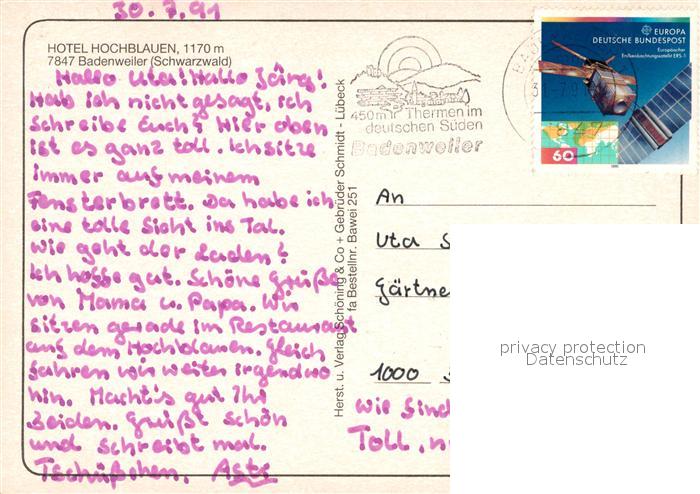 30.7.91
HOTEL HOCHBLAUEN, 1170 m
7847 Badenweiler (Schwarzwald)
Hallo Uta! Hallo Jörg!
Hab ich nicht gesagt, ich
schreibe Euch? Hier oben
ist es ganz toll. Ich sitze
immer auf meinem
Fensterbrett. Da habe ich
eine tolle Sicht ins Tal.
Wie geht der Laden?
Ich hoffe gut. Schöne Grüße
von Mama u. Papa. Wir
sitzen gerade im Restaurant
auf dem Hochblauen. Gleich
fahren wir weiter irgendwo
hin. Macht's gut Ihr
Beiden. Grüßt schön
und schreibt mal.
Tschüßchen.
Herst. u. Verlag Schöning & Co + Gebrüder Schmidt - Lübeck
fa Bestellnr. Bawei 251
450 m ü Thermen im
deutschen Süden
Badenweiler
EUROPA
DEUTSCHE BUNDESPOST
Europäischer
Erdbeobachtungssatellit ERS-1
60
An
Uta S
Gärtne
1000
Wie sind
Toll, n
privacy protection
Datenschutz